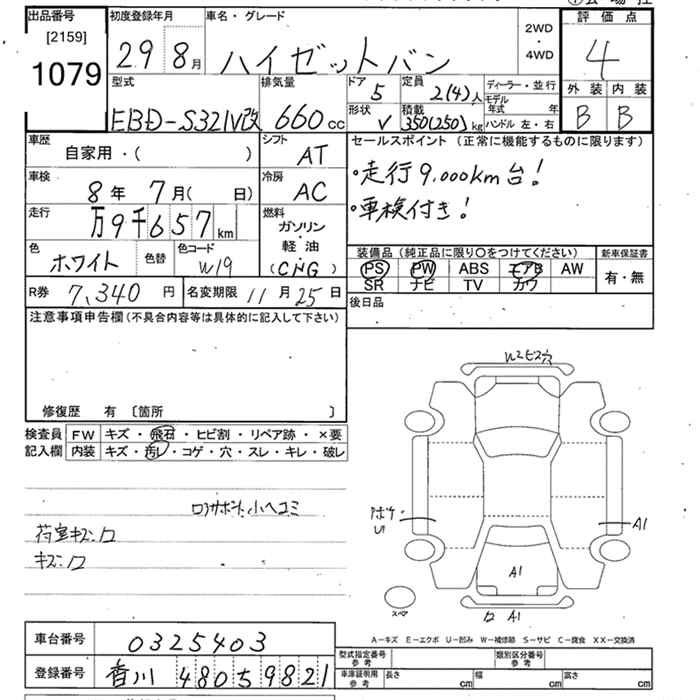 出品番号
[2159]
1079
初度登録年月
29 8月
車名・グレード
ハイゼットバン
2WD
・
4WD
評価点
4
外装 内装
B B
型式
EBD-S321V改
排気量
660cc
ドア
5
定員
2(4)人
形状
V
積載
350(250)kg
ディーラー・並行
モデル年式 年
ハンドル 左・右
車歴
自家用・( )
シフト
AT
車検
8年 7月( 日)
冷房
AC
走行
万9千657km
燃料
ガソリン
・
軽油
(CNG)
色
ホワイト
色替
色コード
W19
セールスポイント (正常に機能するものに限ります)
・走行9,000km台!
・車検付き!
装備品 (純正品に限り〇をつけてください)
PS PW ABS エアB AW
SR ナビ TV カワ
新車保証書
有・無
後日品
R券 7,340円
名変期限 11月25日
注意事項申告欄 (不具合内容等は具体的に記入して下さい)
修復歴 有 〔箇所 〕
検査員
記入欄
FW キズ・飛石・ヒビ割・リペア跡・×要
内装 キズ・汚レ・コゲ・穴・スレ・キレ・破レ
ロアサポート小ヘコミ
荷室キズ:ロ
キズ:ロ
W2ビス穴
U1
A1
A1
ロ A1
スペア
A-キズ E-エクボ U-凹み W-補修跡 S-サビ C-腐食 XX-交換済
車台番号 0325403
登録番号 香川 480 59821
型式指定番号
参考
類別区分番号
参考
車庫証明用
参考
長さ cm 幅 cm 高さ cm